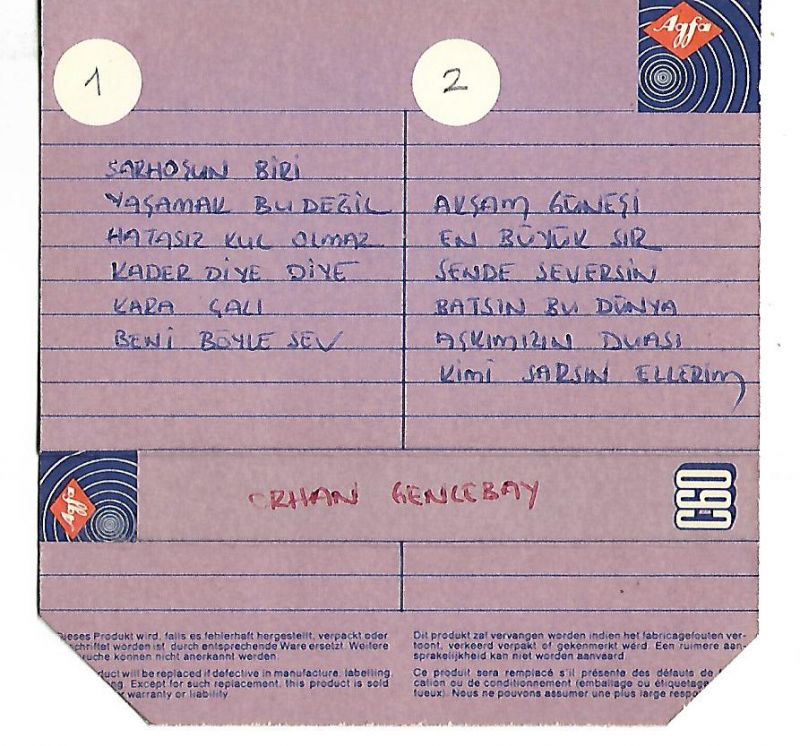 1
2
Agfa
SARHOŞUN BİRİ
YAŞAMAK BU DEĞİL
HATASIZ KUL OLMAZ
KADER DİYE DİYE
KARA ÇALI
BENİ BÖYLE SEV
AKŞAM GÜNEŞİ
EN BÜYÜK SIR
SENDE SEVERSİN
BATSIN BU DÜNYA
AŞKIMIZIN DUASI
KİMİ SARSIN ELLERİM
Agfa
ORHAN GENCEBAY
C-60
Dieses Produkt wird, falls es fehlerhaft hergestellt, verpackt oder
schriftet worden ist, durch entsprechende Ware ersetzt. Weitere
rüche können nicht anerkannt werden.
uct will be replaced if defective in manufacture, labelling
ng. Except for such replacement, this product is sold
warranty or liability
Dit produkt zal vervangen worden indien het fabricagefouten ver-
toont, verkeerd verpakt of gekenmerkt werd. Een ruimere aan-
sprakelijkheid kan niet worden aanvaard.
Ce produit sera remplacé s'il présente des défauts de
cation ou de conditionnement (emballage ou étiquetage
tueux). Nous ne pouvons assumer une plus large respo